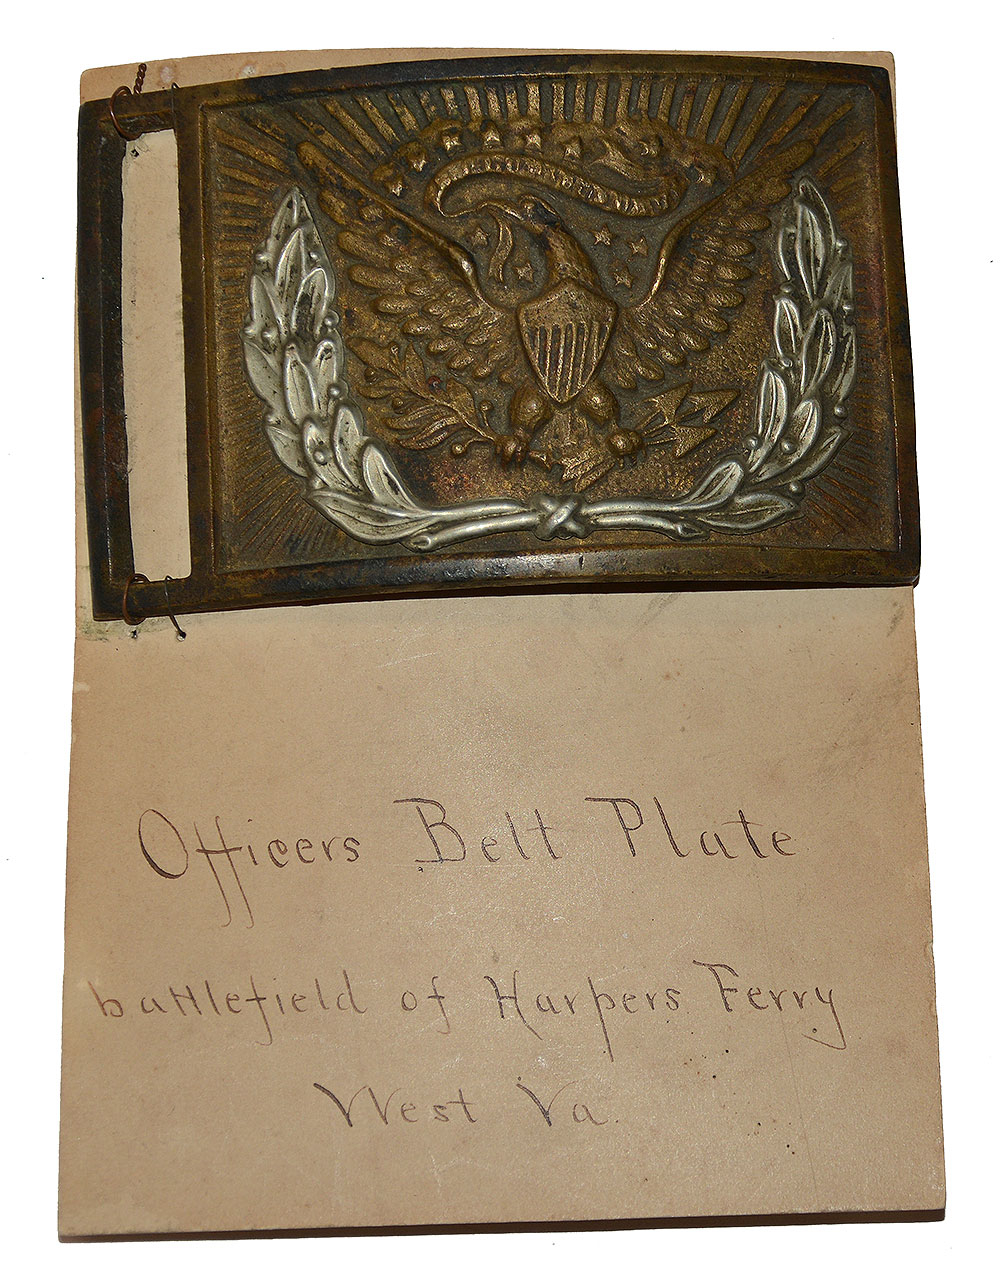 Officers Belt Plate
battlefield of Harpers Ferry
West Va.